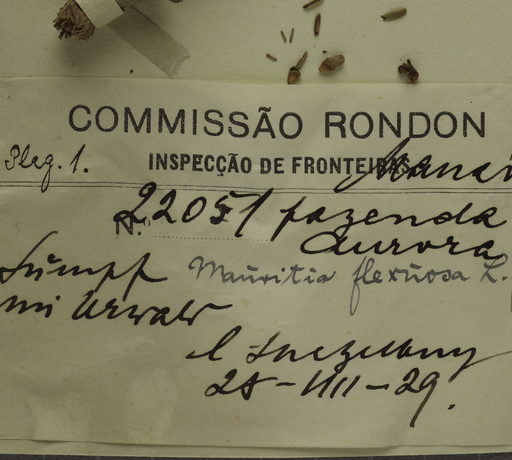 COMMISSÃO RONDON
Pleg. 1. INSPECÇÃO DE FRONTEIRAS
N.º 22051 fazenda
Aurora
Sümpf Mauritia flexuosa L.
im Urwald
28-VIII-29.